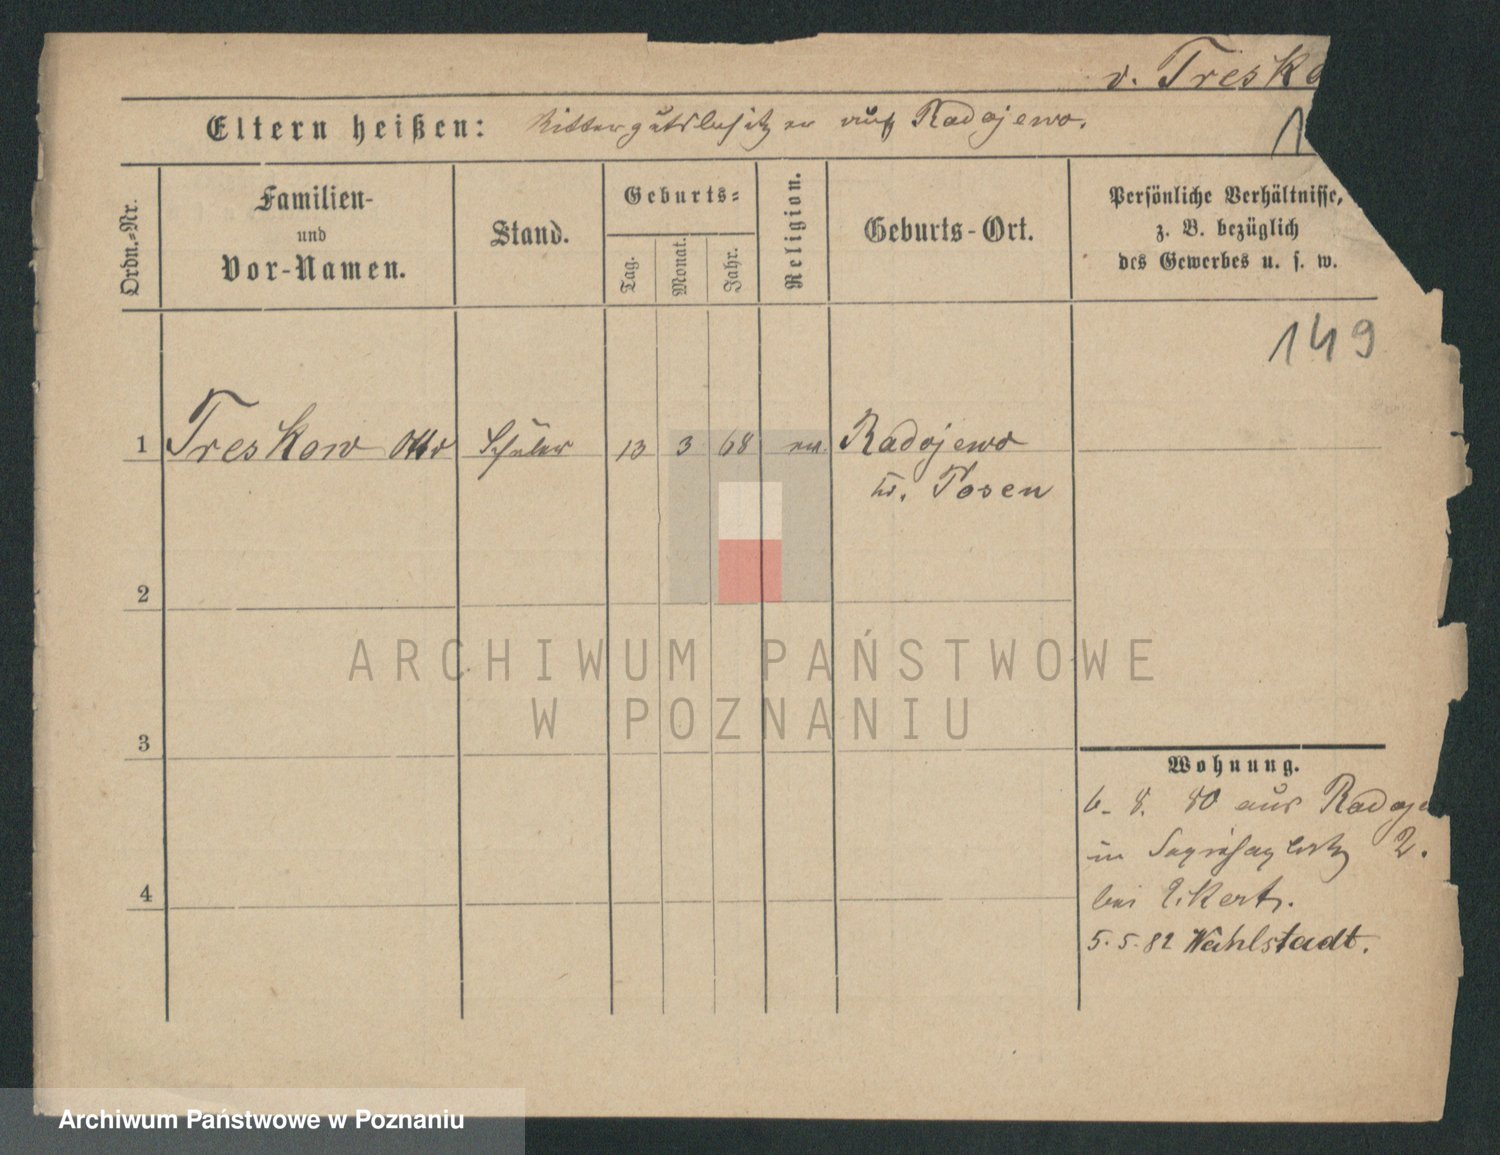 v. Tresko
Eltern heißen: Rittergutsbesitzer auf Radojewo.
1
Ordn.-Nr.
Familien-
und
Vor-Namen.
Stand.
Geburts-
Tag.
Monat.
Jahr.
Religion.
Geburts-Ort.
Persönliche Verhältnisse,
z. B. bezüglich
des Gewerbes u. s. w.
149
1 Treskow Otto Schüler 13 3 68 ev. Radojewo
Kr. Posen
2
3
4
Wohnung.
6. 8. 80 aus Radoje
in Sapiehaplatz 2.
bei Eikert.
5. 5. 82 Wahlstadt.
ARCHIWUM PAŃSTWOWE
W POZNANIU
Archiwum Państwowe w Poznaniu